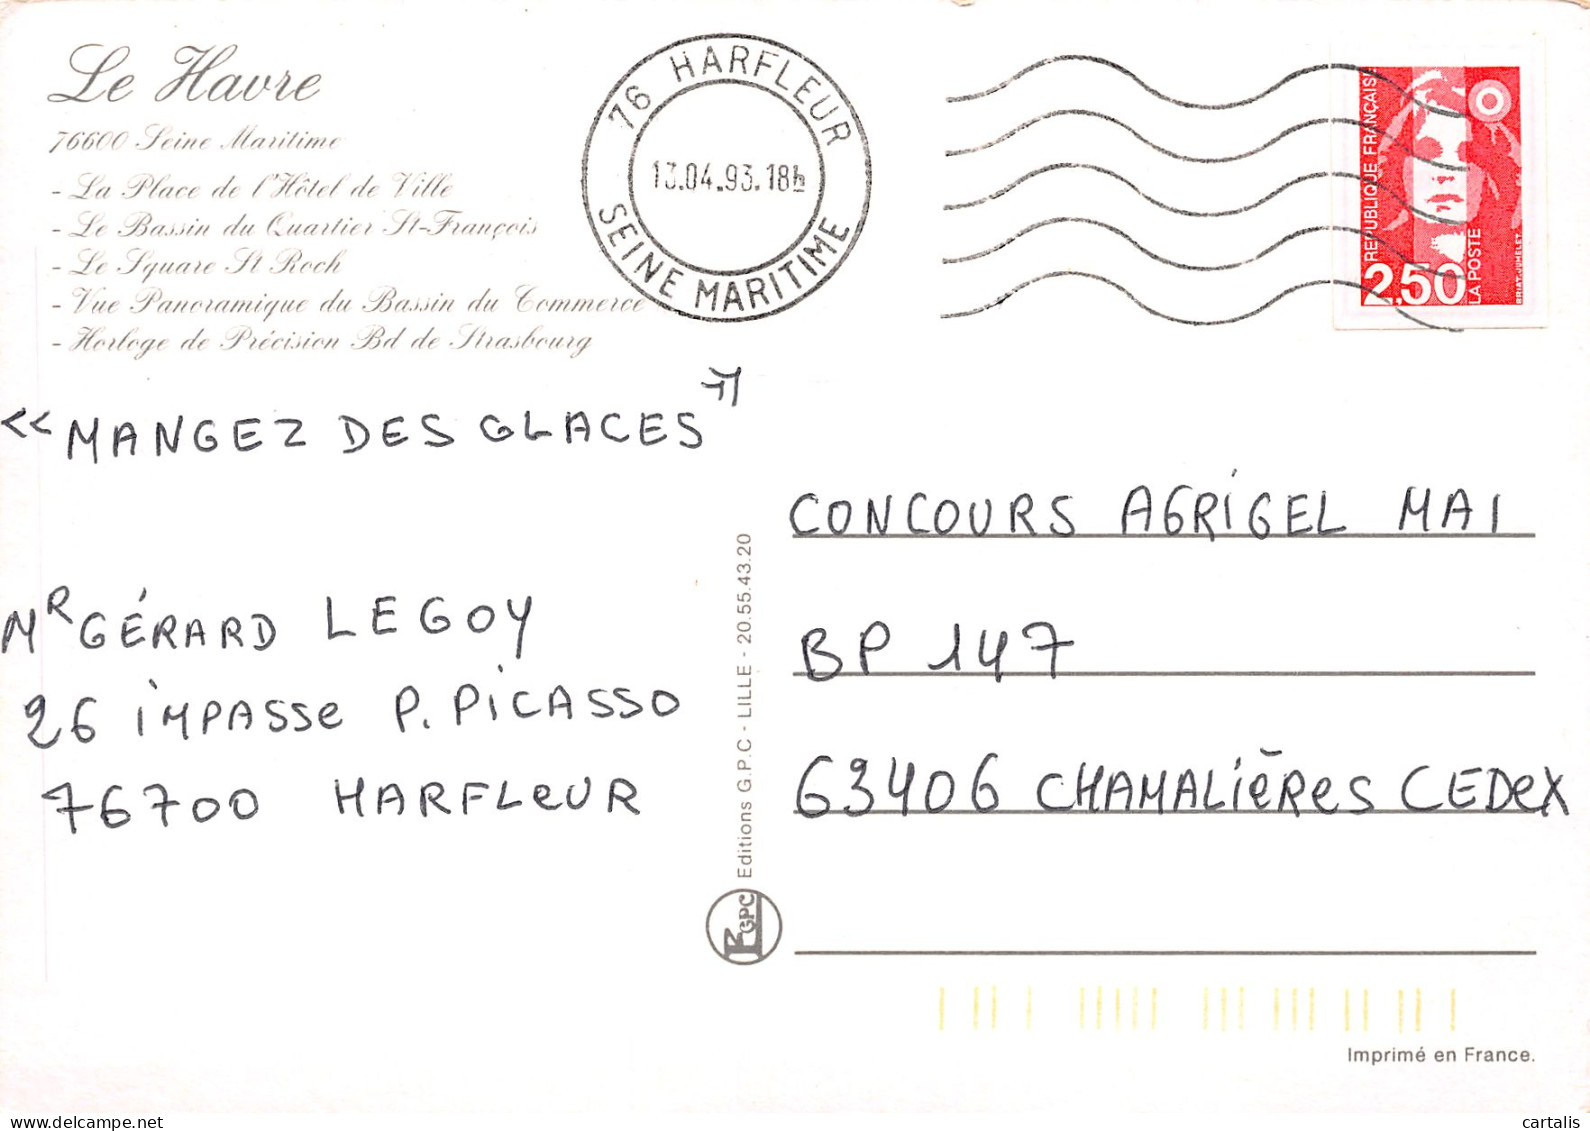 Le Havre
76600 Seine Maritime
- La Place de l'Hôtel de Ville
- Le Bassin du Quartier St-François
- Le Square St Roch
- Vue Panoramique du Bassin du Commerce
- Horloge de Précision Bd de Strasbourg
76 HARFLEUR
13.04.93.18h
SEINE MARITIME
REPUBLIQUE FRANÇAISE
2,50
LA POSTE
BRIAT-JUMELET
<< MANGEZ DES GLACES >>
MR GÉRARD LEGOY
26 iMPASSe P. PiCASSO
76700 HARFLeUR
Editions G.P.C - LILLE - 20.55.43.20
GPC
CONCOURS AGRiGEL MAI
BP 147
63406 CHAMALièRes CEDeX
Imprimé en France.
cartalis